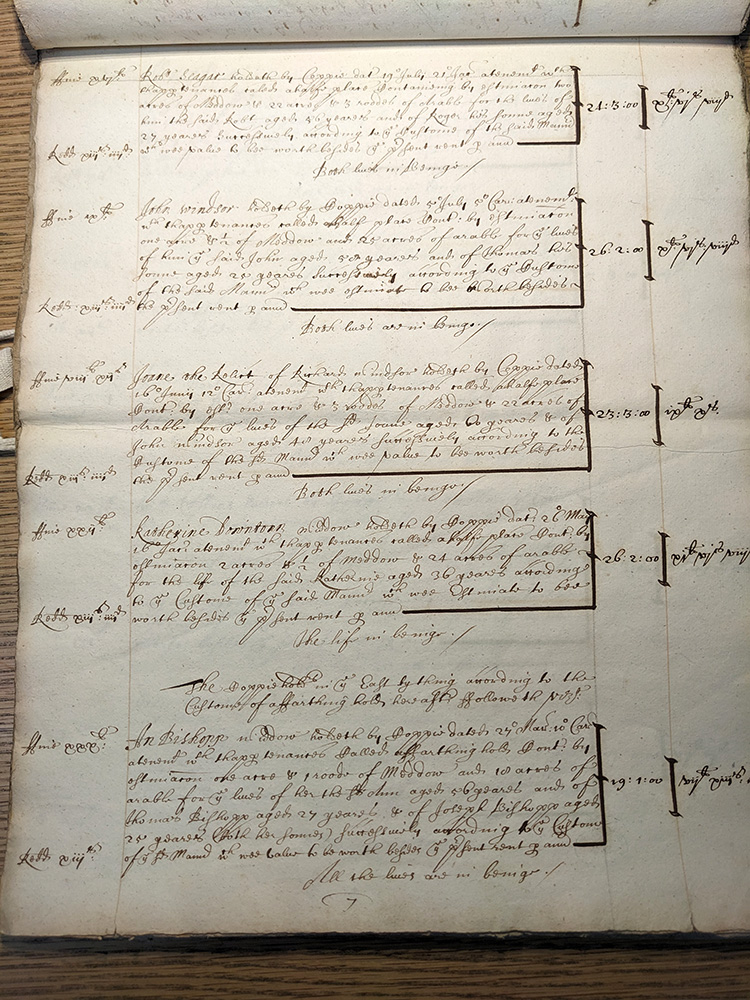 ffine
Robt Seagar holdeth by Coppie dat 19° July 21° Jac: a tenemt wth
thapptenances caled a halfe place Contayning by estimacon two
acres of Meddow & 22 acres & 3 roodes of arrable for the lives of
him the said Robt aged 56 yeares and of Roger his sonne aged
27 yeares successively according to ye Custome of the said Mannor
wch wee value to bee worth besides ye pšent rent p ann
24: 3: 00
Redd xiijs iiijd
Both lives in beinge./
ffine
John Windsor holdeth by Coppie dated 5° July 5° Car: a tenemt
wth thapptenances called a halfe place Cont: by estimacon
one acre & of Meddow and 25 acres of arrable for ye lives
of him ye said John aged 58 yeares and of Thomas his
sonne aged 25 yeares Successively according to ye Custome
of the said Mannr wch wee estimate to bee worth besides
the pšent rent p ann
26: 2: 00
Redd: xiijs iiijd
Both lives are in beinge./
ffine
Joane the Relict of Richard Windsor holdeth by Coppie dated
16° Junij 12° Car: a tenemt wth thapptenances called a halfe place
Cont: by estm: one acre & 3 roodes of Meddow & 22 acres of
arrable for ye lives of the sd Joane aged 60 yeares & of
John Windsor aged 40 yeares successively according to the
Custome of the sd Mannr wch wee value to bee worth besides
the pšent rent p ann
23: 3: 00
Redd xiijs iiijd
Both lives in beinge./
ffine xxijli
Katherine Downton widdow holdeth by Coppie dat: 26 May
16° Jac: a tenemt wth thapptenances called a halfe place Cont: by
estimacon 2 acres & of Meddow & 24 acres of arrable
for the life of the said Katherine aged 36 yeares according
to ye Custome of ye said Mannr wch wee Estimate to bee
worth besides ye pšent rent p ann
26: 2: 00
Redd xiijs iiijd
The life in beinge./
The Coppieholds in ye East tything according to the
Custome of a ffarthing hold hereafter ffolloweth vizt:
ffine xxxli:
An Bishopp widdow holdeth by Coppie dated 27° Mar: 10° Car:
a tenemt wth thapptenances Called a ffarthing hold Cont: by
estimacon one acre & 1 roode of Meddow and 18 acres of
arrable for ye lives of her the sd Ann aged 56 yeares and of
Thomas Bishopp aged 27 yeares & of Joseph Bishopp aged
25 yeares (both her sonnes) successively according to ye Custome
of ye sd Mannr wch wee Value to be worth besides ye pšent rent p ann
19: 1: 00
Redd xiijs:
All the lives are in beinge./
7